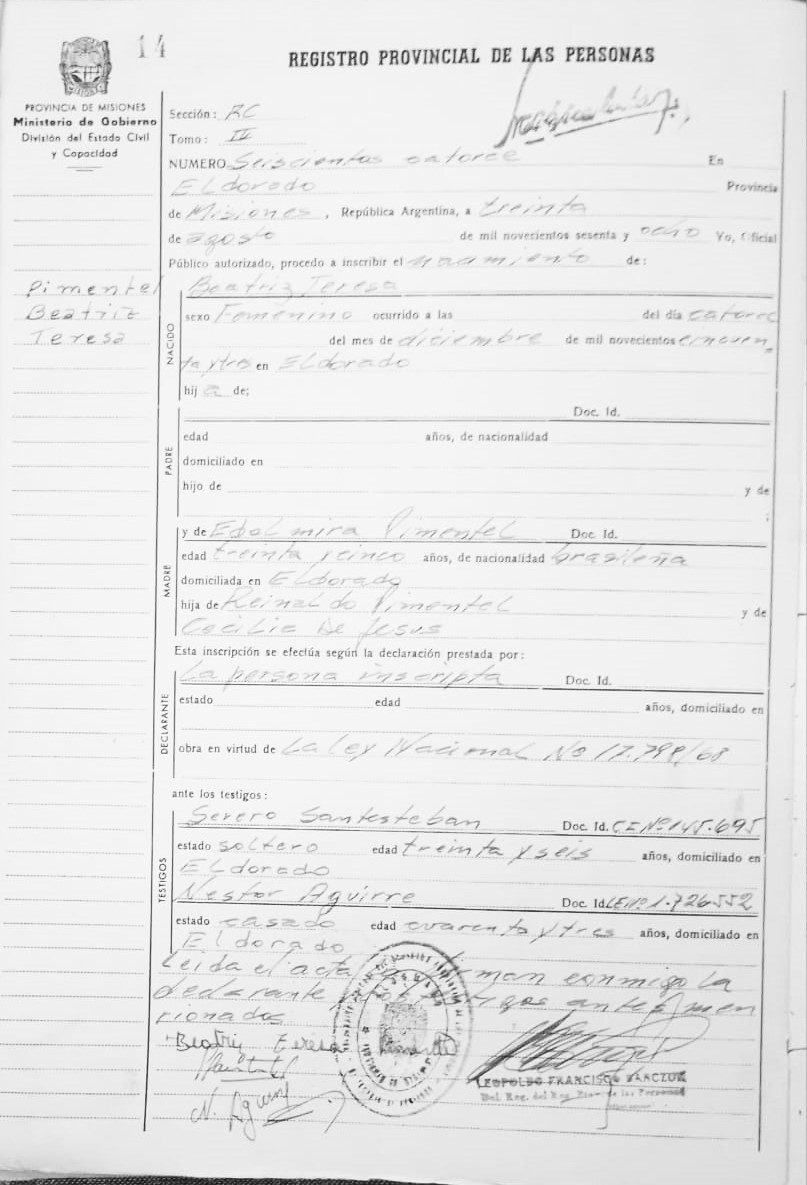 14
REGISTRO PROVINCIAL DE LAS PERSONAS
PROVINCIA DE MISIONES
Ministerio de Gobierno
División del Estado Civil
y Capacidad
Sección: RC
Tomo: III
NUMERO Seiscientos catorce En
ELdorado Provincia
de Misiones, República Argentina, a treinta
de agosto de mil novecientos sesenta y ocho Yo, Oficial
Público autorizado, procedo a inscribir el nacimiento de:
Pimentel
Beatriz
Teresa
NACIDO
Beatriz Teresa
sexo Femenino ocurrido a las del día catorce
del mes de diciembre de mil novecientos cincuen
ta y tres en ELdorado
hij a de;
PADRE
Doc. Id.
edad años, de nacionalidad
domiciliado en
hijo de y de
;
MADRE
y de Edelmira Pimentel Doc. Id.
edad treinta y cinco años, de nacionalidad brasileña
domiciliada en ELdorado
hija de Reinaldo Pimentel y de
Cecilia De Jesus
Esta inscripción se efectúa según la declaración prestada por:
DECLARANTE
La persona inscripta Doc. Id.
estado edad años, domiciliado en
obra en virtud de La Ley Nacional No 17.798/68
ante los testigos:
TESTIGOS
Severo Santesteban Doc. Id. CI Nº 145.695
estado soltero edad treinta y seis años, domiciliado en
ELdorado
Nestor Aguirre Doc. Id. LE Nº 1.726552
estado casado edad cuarenta y tres años, domiciliado en
ELdorado
Leida el acta conmigo la
declarante antes men
cionados
Beatriz Teresa Pimentel
N. Aguirre
LEOPOLDO FRANCISCO
Del. Reg. del Reg. Prov. de las Personas